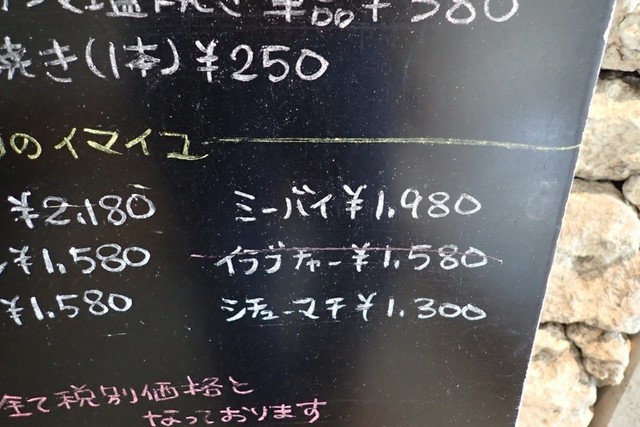 塩焼き 単品+380
焼き(1本)¥250
のイマイユ
¥2,180 ミーバイ¥1,980
¥1,580 イラブチャー¥1,580
¥1,580 シチューマチ¥1,300
全て税別価格と
なっております